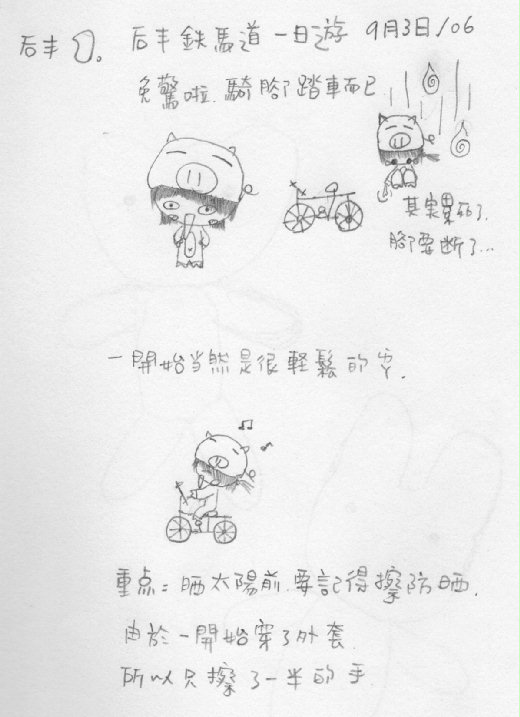 后丰①。
后丰鉄馬道一日遊 9月3日/06
免驚啦.騎腳踏車而已
其实累死了.
腳要断了...
一開始当然是很輕鬆的ㄘ.
重点:晒太陽前.要記得擦防晒.
由於一開始穿了外套.
所以只擦了一半的手.